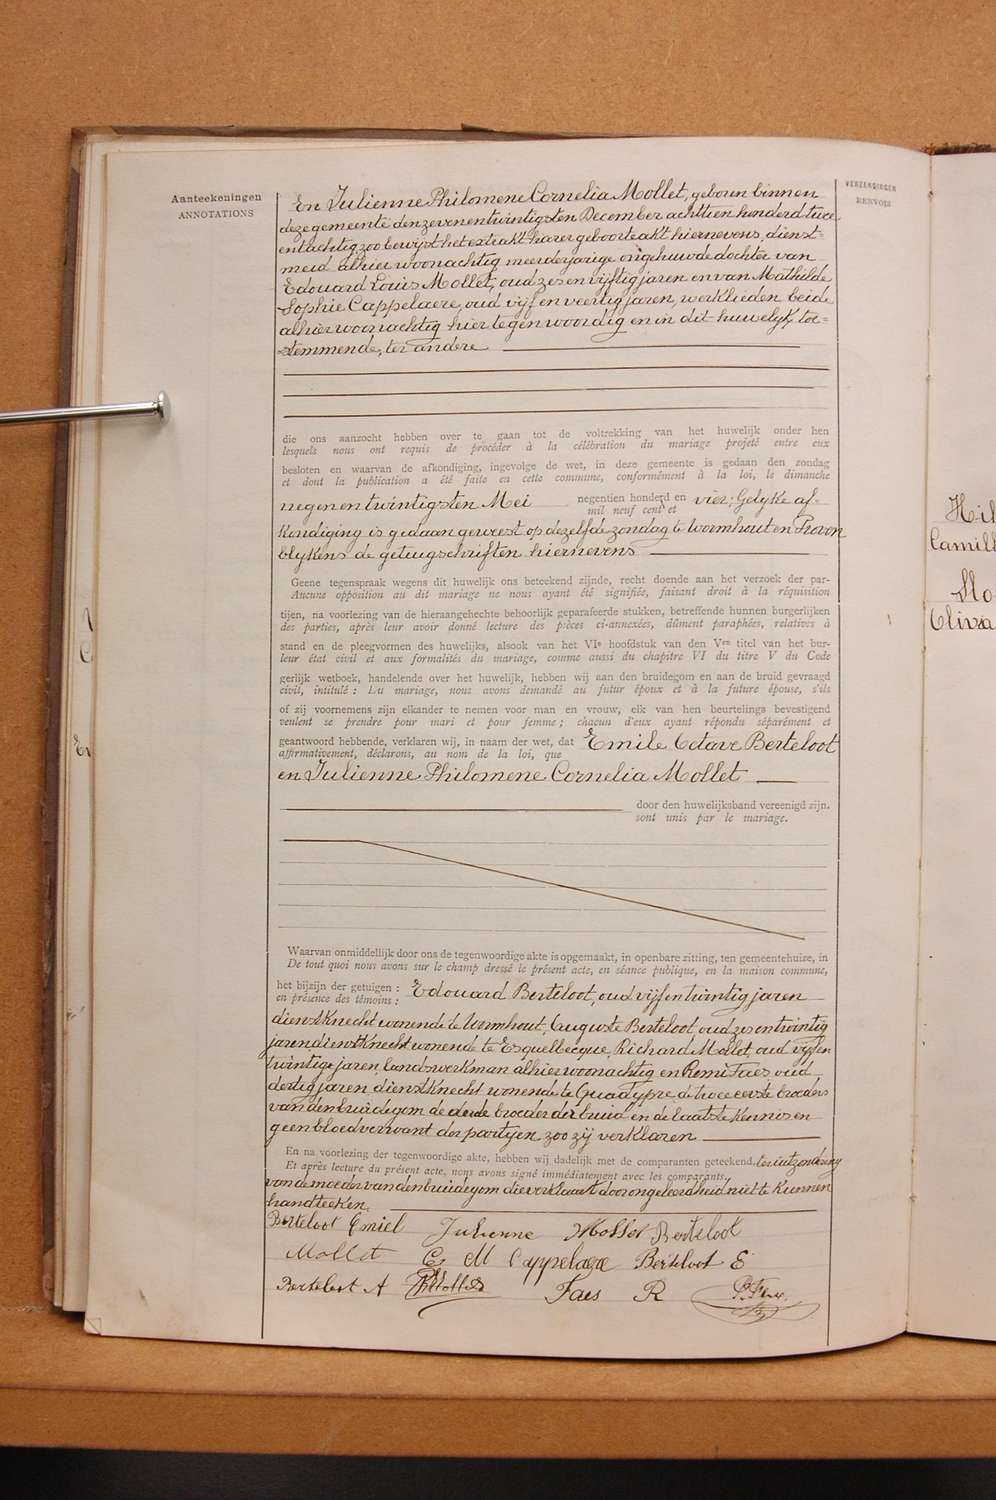 Aanteekeningen
ANNOTATIONS
VERZENDINGEN
RENVOIS
En Julienne Philomene Cornelia Mollet, geboren binnen
deze gemeente den zevenentwintigsten December achttien honderd twee
entachtig zoo bewijst het extrakt harer geboorteakt hiernevens, dienst=
meid alhier woonachtig meerderjarige ongehuwde dochter van
Edouard Louis Mollet, oud zes en vijftig jaren en van Mathilde
Sophie Cappelaere, oud vijf en veertig jaren, werklieden beide
alhier woonachtig hier tegenwoordig en in dit huwelyk toe=
stemmende, ter andere
die ons aanzocht hebben over te gaan tot de voltrekking van het huwelijk onder hen
lesquels nous ont requis de procéder à la célébration du mariage projeté entre eux
besloten en waarvan de afkondiging, ingevolge de wet, in deze gemeente is gedaan den zondag
et dont la publication a été faite en cette commune, conformément à la loi, le dimanche
negenentwintigsten Mei negentien honderd en vier; Gelyke af-
mil neuf cent et
kondiging is gedaan geweest op dezelfde zondag te Wormhout en Proven
blykens de getuigschriften hiernevens
Geene tegenspraak wegens dit huwelijk ons beteekend zijnde, recht doende aan het verzoek der par-
Aucune opposition au dit mariage ne nous ayant été signifiée, faisant droit à la réquisition
tijen, na voorlezing van de hieraangehechte behoorlijk geparafeerde stukken, betreffende hunnen burgerlijken
des parties, après leur avoir donné lecture des pièces ci-annexées, dûment paraphées, relatives à
stand en de pleegvormen des huwelijks, alsook van het VIe hoofdstuk van den Ven titel van het bur-
leur état civil et aux formalités du mariage, comme aussi du chapitre VI du titre V du Code
gerlijk wetboek, handelende over het huwelijk, hebben wij aan den bruidegom en aan de bruid gevraagd
civil, intitulé : Du mariage, nous avons demandé au futur époux et à la future épouse, s'ils
of zij voornemens zijn elkander te nemen voor man en vrouw, elk van hen beurtelings bevestigend
veulent se prendre pour mari et pour femme ; chacun d'eux ayant répondu séparément et
geantwoord hebbende, verklaren wij, in naam der wet, dat Emile Octave Berteloot
affirmativement, déclarons, au nom de la loi, que
en Julienne Philomene Cornelia Mollet
door den huwelijksband vereenigd zijn.
sont unis par le mariage.
Waarvan onmiddellijk door ons de tegenwoordige akte is opgemaakt, in openbare zitting, ten gemeentehuize, in
De tout quoi nous avons sur le champ dressé le présent acte, en séance publique, en la maison commune,
het bijzijn der getuigen : Edouard Berteloot, oud vijfentwintig jaren
en présence des témoins :
dienstknecht wonende te Wormhout, Auguste Berteloot oud zesentwintig
jaren dienstknecht wonende te Esquelbecque, Richard Mollet, oud vijfen
twintig jaren, landswerkman alhier woonachtig en Remi Faes oud
dertig jaren dienstknecht wonende te Quadypre de twee eerste broeders
van den bruidegom de derde broeder der bruid en de laatste kennis en
geen bloedverwant der partijen zoo zij verklaren
En na voorlezing der tegenwoordige akte, hebben wij dadelijk met de comparanten geteekend, ter uitzondering
Et après lecture du présent acte, nous avons signé immédiatement avec les comparants.
van de moeder van den bruidegom die verklaart door ongeleerdheid niet te kunnen
handteeken.
Berteloot Emiel Julienne Mollet Berteloot
Mollet E M Cappelaere Berteloot E
Berteloot A R Mollet Faes R
Hil
Camill
Clixa